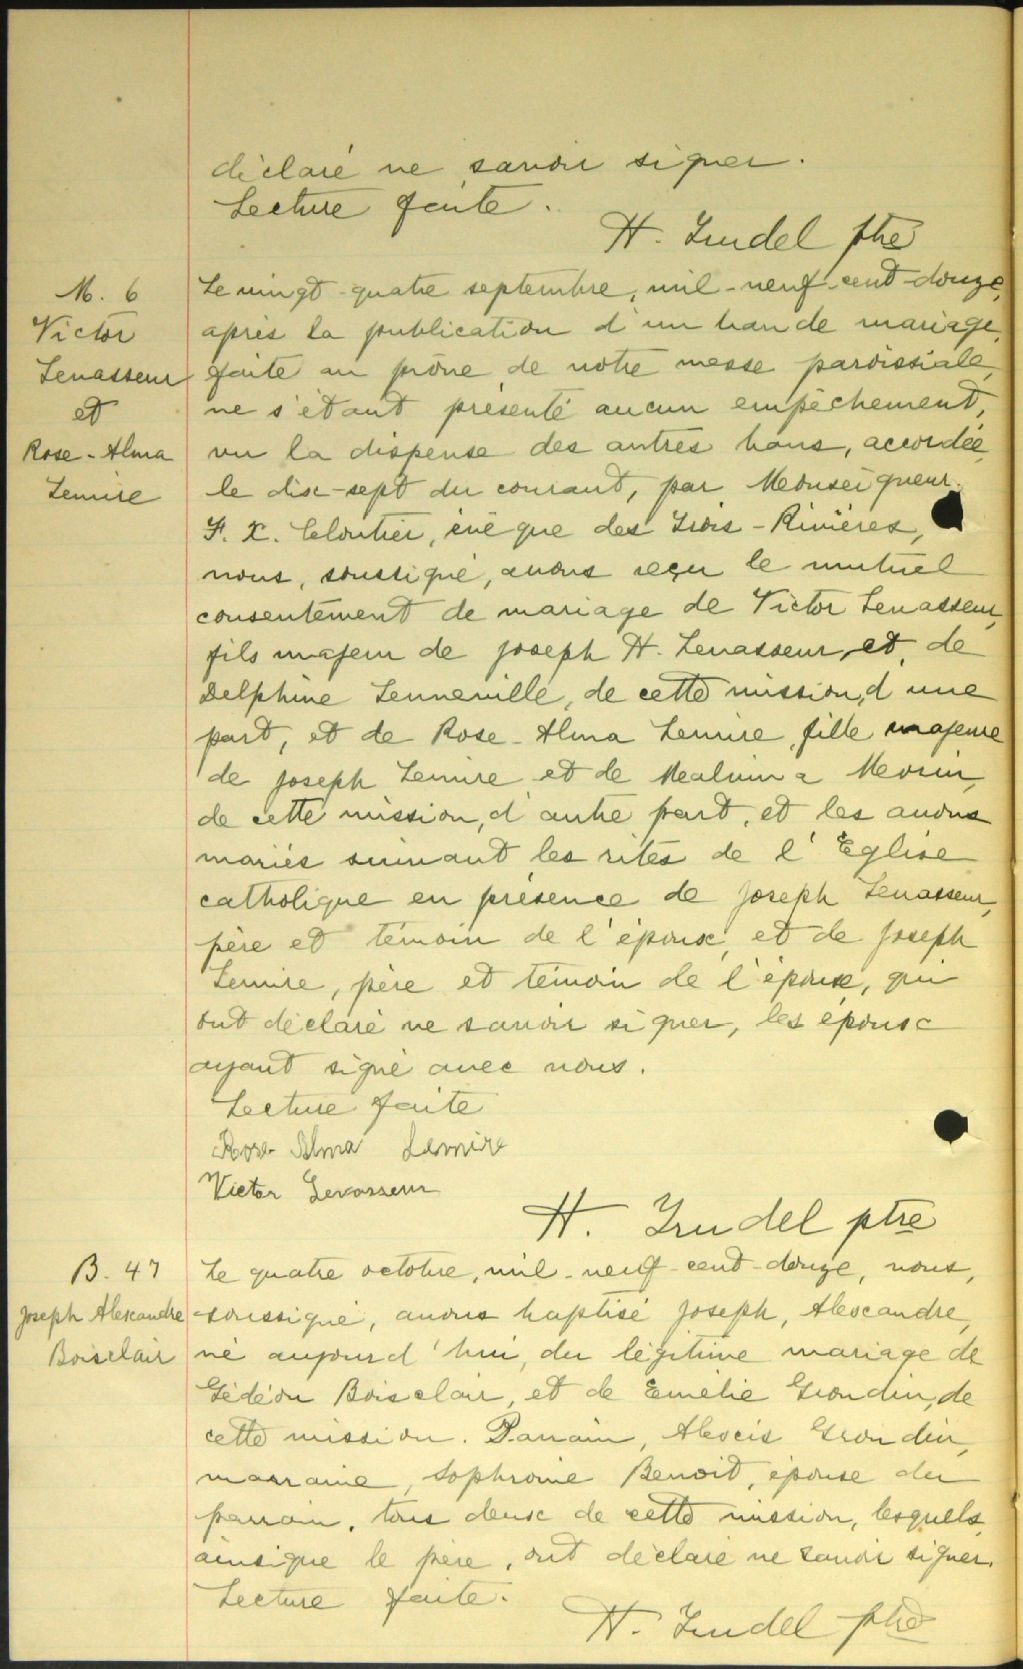 déclaré ne savoir signer.
Lecture faite.
H. Trudel ptre
M. 6
Victor
Levasseur
et
Rose-Alma
Lemire
Le vingt-quatre septembre, mil-neuf-cent-douze,
après la publication d'un ban de mariage,
faite au prône de notre messe paroissiale,
ne s'étant présenté aucun empêchement,
vu la dispense des autres bans, accordée,
le dix-sept du courant, par Monseigneur
F. X. Cloutier, évêque des Trois-Rivières,
nous, soussigné, avons reçu le mutuel
consentement de mariage de Victor Levasseur,
fils majeur de Joseph H. Levasseur, et, de
Delphine Lenneville, de cette mission, d'une
part, et de Rose-Alma Lemire, fille majeure
de Joseph Lemire et de Mealvina Morin,
de cette mission, d'autre part, et les avons
mariés suivant les rites de l'Eglise
catholique en présence de Joseph Levasseur,
père et témoin de l'époux, et de Joseph
Lemire, père et témoin de l'épouse, qui
ont déclaré ne savoir signer, les époux
ayant signé avec nous.
Lecture faite
Rose Alma Lemire
Victor Levasseur
H. Trudel ptre
B. 47
Joseph Alexandre
Boisclair
Le quatre octobre, mil-neuf-cent-douze, nous,
soussigné, avons baptisé Joseph, Alexandre,
né aujourd'hui, du légitime mariage de
Gédéon Boisclair, et de Emélie Grondin, de
cette mission. Parrain, Alexis Grondin,
marraine, Sophronie Benoit, épouse du
parrain, tous deux de cette mission, lesquels,
ainsi que le père, ont déclaré ne savoir signer.
Lecture faite.
H. Trudel ptre